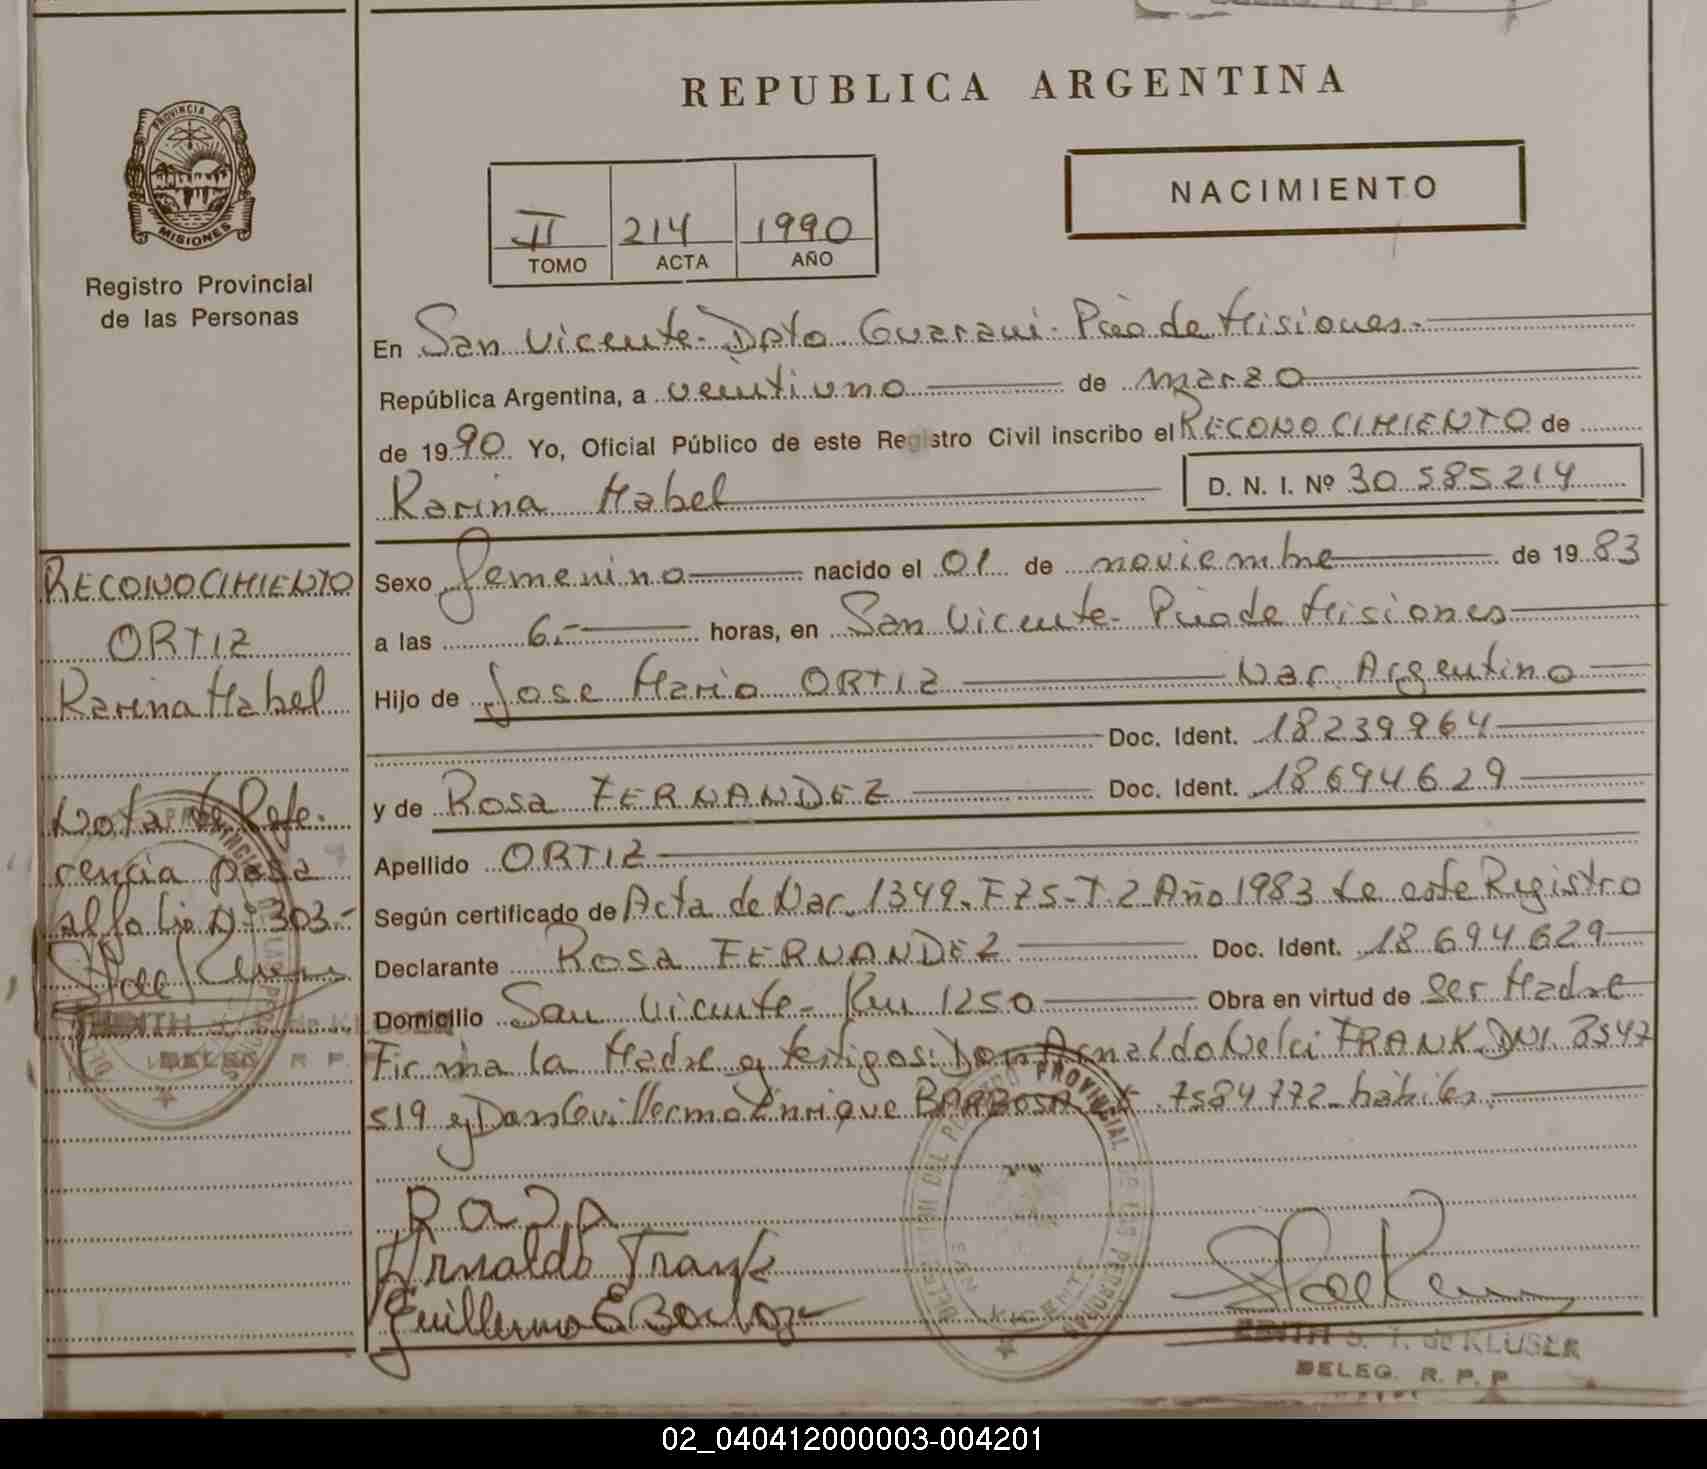 REPUBLICA ARGENTINA
NACIMIENTO
PROVINCIA DE
MISIONES
Registro Provincial
de las Personas
II 214 1990
TOMO ACTA AÑO
En San Vicente - Dpto. Guarani - Pcia de Misiones.-
República Argentina, a veintiuno de marzo
de 1990 Yo, Oficial Público de este Registro Civil inscribo el RECONOCIMIENTO de
Karina Mabel D. N. I. Nº 30.585.214
Sexo femenino nacido el 01 de noviembre de 1983
a las 6.- horas, en San Vicente - Pcia de Misiones
Hijo de Jose Mario ORTIZ Nac. Argentino
Doc. Ident. 18239964
y de Rosa FERNANDEZ Doc. Ident. 18694629
Apellido ORTIZ
Según certificado de Acta de Nac. 1349-F75-T2 Año 1983 de este Registro
Declarante Rosa FERNANDEZ Doc. Ident. 18.694.629
Domicilio San Vicente - Km 1250 Obra en virtud de ser Madre
Firma la Madre y testigos: Don Arnaldo Nelci FRANK DNI. 8547
519 y Don Guillermo Enrique BARBOSA 7584772 habiles.
RECONOCIMIENTO
ORTIZ
Karina Mabel
Nota de Refe-
rencia pasa
al folio Nº 303.-
ROSA
Arnaldo Frank
Guillermo E Barboza
EDITH S. T. de KLUSER
DELEG. R. P. P
DELEG. R. P.
PROVINCIAL
02_040412000003-004201